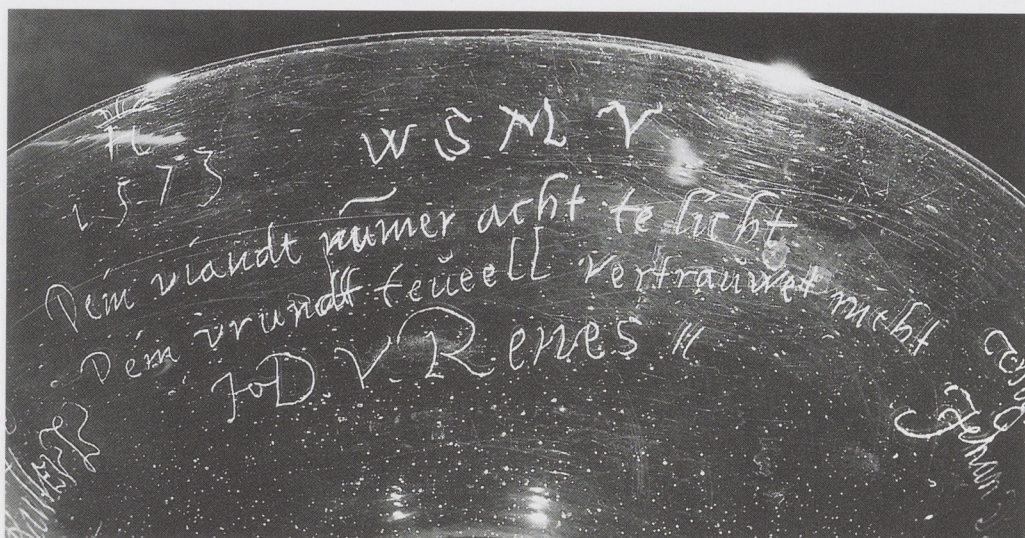 1573
W S M V
Dem viandt nümer acht te licht
Dem vrundt teueell vertrauwet nicht
JoD V. Renes
Jehan